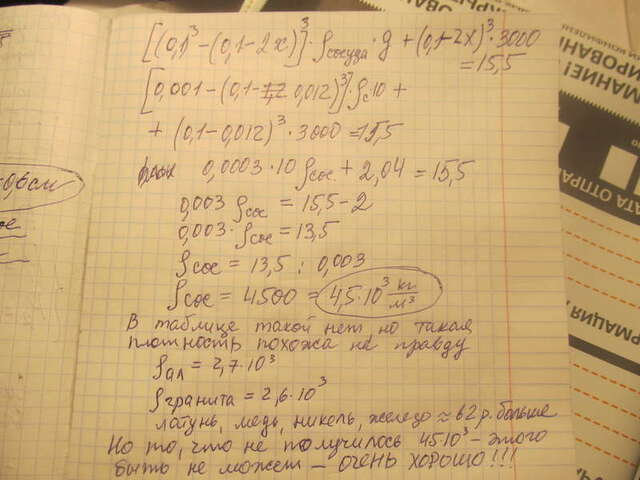 [(0,1)³-(0,1-2x)]³·ρсосуда·g+(0,1-2x)³·3000
=15,5
[0,001-(0,1-0,012)³]·ρс·10+
+(0,1-0,012)³·3000=15,5
0,0003·10ρсос+2,04=15,5
0,003ρсос=15,5-2
0,003·ρсос=13,5
ρсос=13,5:0,003
ρсос=4500=4,5·10³ кг/м³
В таблице такой нет, но такая
плотность похожа на правду
ρал=2,7·10³
ρгранита=2,6·10³
латунь, медь, никель, железо ≈ в 2 р. больше
Но то, что не получилось 45·10³ - этого
быть не может - ОЧЕНЬ ХОРОШО!!!
0,6см
МАНИЕ!
АТА ОТПРА
РМАЦИЯ,